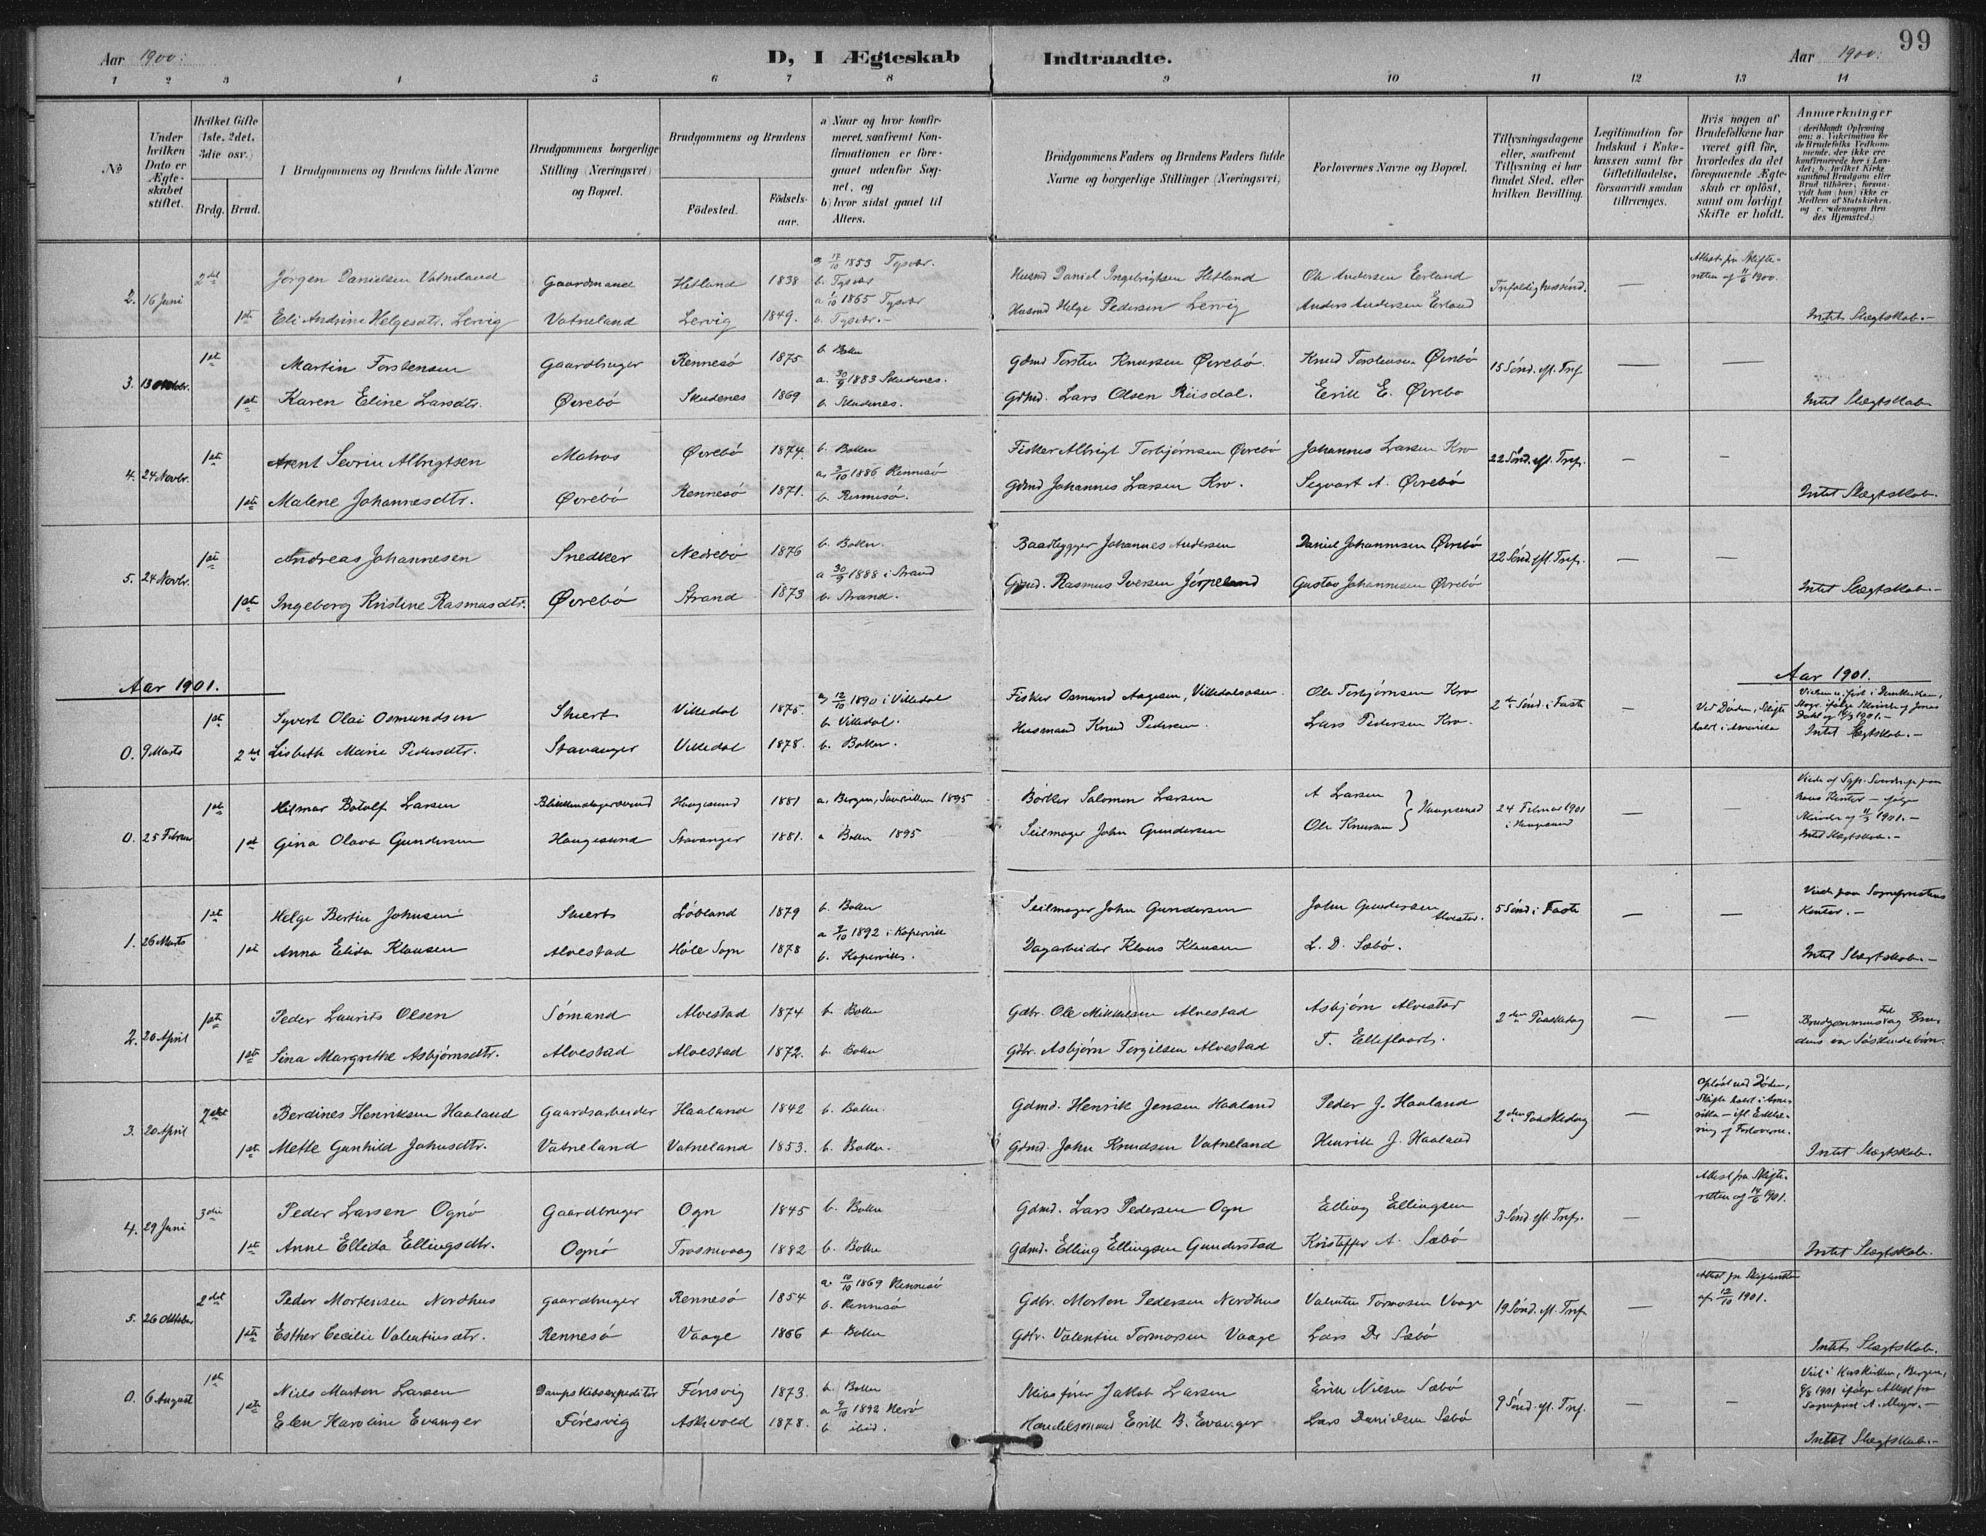 99
Aar 1900. D, I Ægteskab Indtraadte. Aar 1900.
1 2 3 4 5 6 7 8 9 10 11 12 13 14
No.
Under hvilken Dato er Ægteskabet stiftet.
Hvilket Gifte (1ste, 2det, 3die osv.)
Brdg. Brud.
I Brudgommens og Brudens fulde Navne
Brudgommens borgerlige Stilling (Næringsvei) og Bopæl.
Brudgommens og Brudens
Fødested. Fødselsaar.
a) Naar og hvor konfirmeret, saafremt Konfirmationen er foregaaet udenfor Sognet, og
b) hvor sidst gaaet til Alters.
Brudgommens Faders og Brudens Faders fulde Navne og borgerlige Stillinger (Næringsvei)
Forlovernes Navne og Bopæl.
Tillysningsdagene eller, saafremt Tillysning ei har fundet Sted, efter hvilken Bevilling.
Legitimation for Indskud i Enkekassen samt for Giftetilladelse, forsaavidt saadan tiltrænges.
Hvis nogen af Brudefolkene har været gift før, hvorledes da det foregaaende Ægteskab er opløst, samt om lovligt Skifte er holdt.
Anmærkninger
2det Jørgen Danielsen Vatneland Gaardmand Hetland 1838 a 17/10 1853 Tysvær. b. Tysvær Husmd Daniel Ingebrigtsen Hetland Ole Andersen Erland Attest fra Skifteretten af 11/6 1900.
2. 16 Juni 1ste Eli Andrine Helgesdtr. Lervig Vatneland Lervig 1849. a 1/10 1865 Tysvær b. Tysvær. — Husmd Helge Pedersen Lervig Anders Andersen Erland Trefoldighedssønd. — Intet Slægtskab. —
1ste Martin Torstensen Gaardbruger Rennesø 1875 b. Bokn Gdmd Torsten Knutsen Øvrebø. Knud Torstensen Øvrebø
3. 13 Oktobr. 1ste Karen Eline Larsdtr. Øvrebø Skudenes 1869 a. 30/9 1883 Skudenes. b. Skudenes. Gdmd. Lars Olsen Riisdal. Erik E. Øvrebø 15 Sønd. eft. Tref. — — Intet Slægtskab.
1ste Arent Sevrin Albrigtsen Matros Øvrebø 1874. b. Bokn Fisker Albrigt Torbjørnsen Øvrebø Johannes Larsen Kro
4. 24 Novbr. 1ste Malene Johannesdtr. Øvrebø Rennesø 1871. a. 3/10 1886 Rennesø b. Rennesø. Gdmd Johannes Larsen Kro. Segvart A. Øvrebø 22 Sønd. eft. Tref. — — Intet Slægtskab.
1ste Andreas Johannesen Snedker Nedrebø 1876 b. Bokn. Baadbygger Johannes Andersen Daniel Johannesen Øvrebø
5. 24 Novbr. 1ste Ingeborg Kristine Rasmusdtr. Øvrebø Strand 1873 a 30/9 1888 i Strand b. Strand. Gdmd. Rasmus Iversen Jørpeland Gustav Johannesen Øvrebø 22 Sønd. eft. Tref. — — Intet Slægtskab. —
Aar 1901. Aar 1901.
1ste Syvert Olai Osmundsen Stuert Villedal 1875. a) 12/10 1890 i Villedal b. Villedal. Fisker Osmund Aagesen, Villedalsosen Ole Torbjørnsen Kro
0. 9 Marts 2det Lisbeth Marie Pedersdtr. Stavanger Villedal 1878. b. Bokn. Husmand Knud Pedersen. Lars Pedersen Kro. 2den Sønd. i Faste — Ved Døden, Skifte holdt i Amerika Intet Slægtskab. —
1ste Hilmar Botolf Larsen Blikkenslagersvend Haugesund 1881 a. Bergen, 1895 Bødker Salomon Larsen A Larsen
0. 25 Februar 1ste Gina Olava Gundersen Haugesund Stavanger 1881. a Bokn 1895 Seilmager John Gundersen Ole Knutsen Haugesund 24 Februar 1901 i Haugesund — Intet Slægtskab. —
1ste Helge Bertin Johnsen Stuert Løbland 1879 b. Bokn Seilmager John Gundersen John Gundersen Alvestad.
1. 26 Marts 1ste Anna Elida Klausen Alvestad Høle Sogn 1878 a 9/10 1892 i Kopervik b. Kopervik. Dagarbeider Klaus Klausen L. D. Sæbø. 5 Sønd. i Faste — — Viede paa Sognepræstens Kontor. — Intet Slægtskab. —
1ste Peder Laurits Olsen Sømand Alvestad 1874 b. Bokn Gdbr. Ole Mikkelsen Alvestad Asbjørn Alvestad
2. 20 April 1ste Sina Margrethe Asbjørnsdtr. Alvestad Alvestad 1872. b. Bokn Gdbr. Asbjørn Torgilsen Alvestad T. Elleflaadt. 2den Paaskedag — — Brudgommens Far og Brudens var Søskendebørn.
2det Berdines Henriksen Haaland Gaardsarbeider Haaland 1842 b. Bokn. Gdmd. Henrik Jensen Haaland Peder J. Haaland
3. 20 April 1ste Mette Gunhild Johnsdtr. Vatneland Vatneland 1853. b. Bokn. Gdmd. John Knudsen Vatneland Henrik J. Haaland 2den Paaskedag — Opløst ved Døden, Skifte holdt i Amerika — eft. Erklæring af Forloverne. Intet Slægtskab.
3die Peder Larsen Ognø Gaardbruger Ogn 1845 b. Bokn Gdmd. Lars Pedersen Ogn Elling Ellingsen Attest fra Skifteretten af 14/6 1901.
4. 29 Juni 1ste Anne Ellida Ellingsdtr. Ognø Trosnevaag 1882 b. Bokn Gdmd. Elling Ellingsen Gunderstad Kristoffer A. Sæbø 3 Sønd. eft. Tref. — Intet Slægtskab.
2det Peder Mortensen Nordhus Gaardbruger Rennesø 1854 a. 10/10 1869 Rennesø b. Rennesø Gdbr. Morten Pedersen Nordhus Valentin Tormosen Vaage Attest fra Skifteretten af 12/10 1901.
5. 26 Oktober 1ste Esther Cecilie Valentinsdtr. Rennesø Vaage 1866 b Bokn Gdbr. Valentin Tormosen Vaage Lars D. Sæbø 19 Sønd. eft. Tref. — Intet Slægtskab.
1ste Niels Morton Larsen Dampskibsexpeditør Førsvig 1873. b. Bokn Skibsfører Jakob Larsen Erik Nielsen Sæbø
0. 6 August 1ste Elen Karoline Evanger Føresvig Askvold 1878. a 9/10 1892 b ibid. Handelsmand Erik B. Evanger Lars Danielsen Sæbø 9 Sønd. eft. Tref. — — Viet i Korskirken, Bergen, 6/8 1901 ifølge Attest fra Sognepræst A. Meyer. — Intet Slægtskab. —